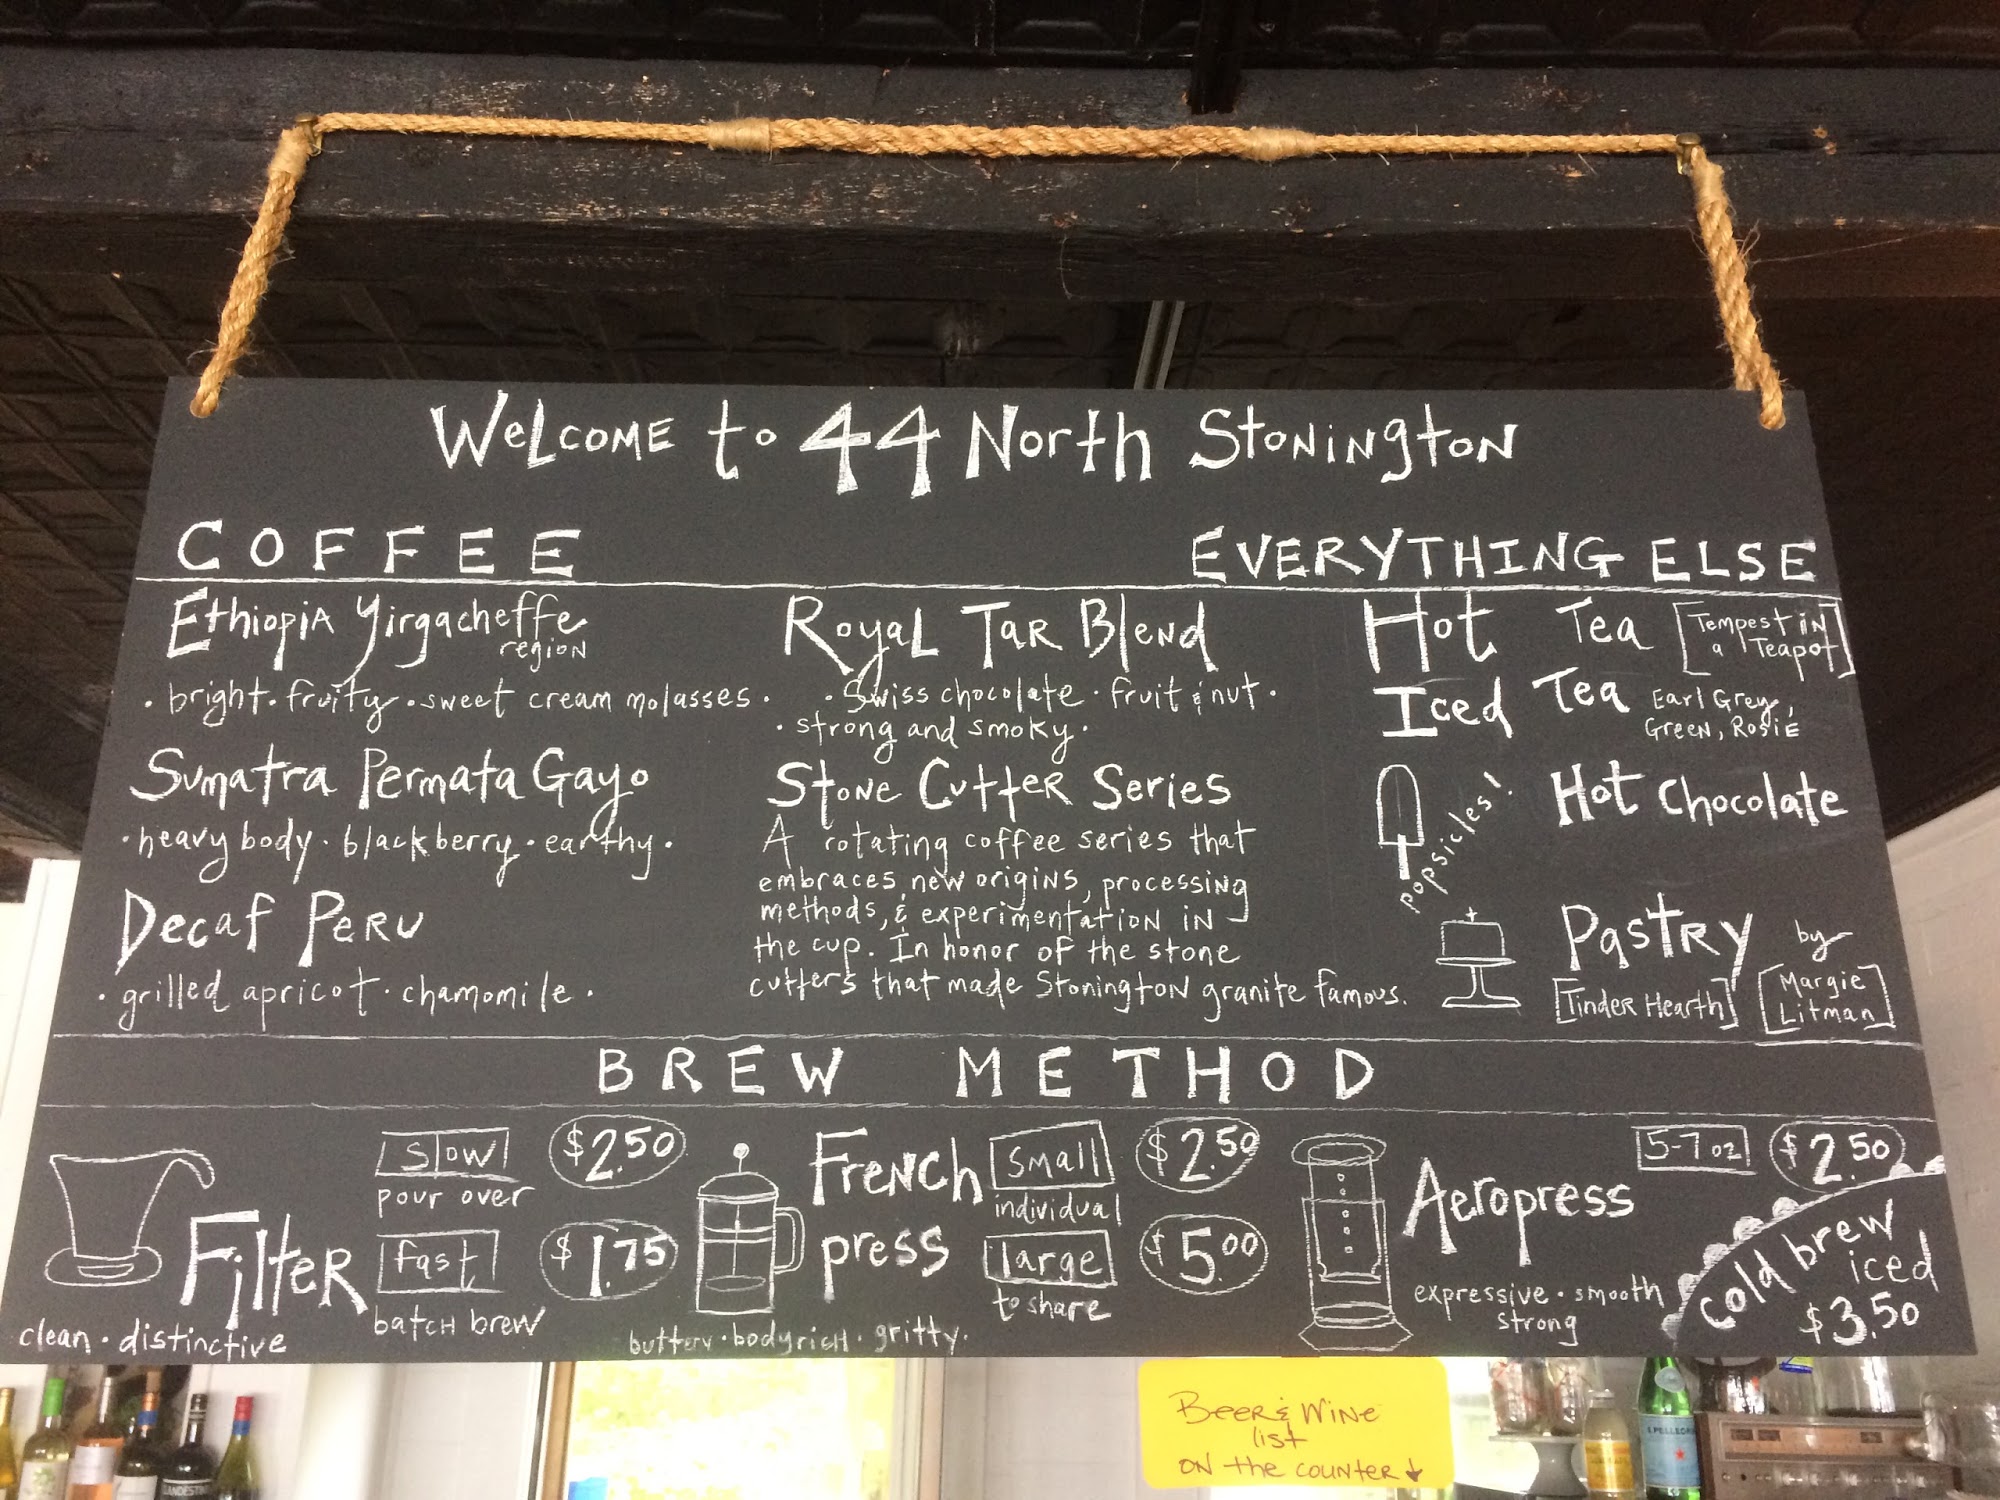 Welcome to 44 North Stonington
COFFEE
Ethiopia Yirgacheffe
region
· bright · fruity · sweet cream molasses ·
Sumatra Permata Gayo
· heavy body · blackberry · earthy ·
Decaf Peru
· grilled apricot · chamomile ·
Royal Tar Blend
· Swiss chocolate · fruit & nut ·
· strong and smoky ·
Stone Cutter Series
A rotating coffee series that
embraces new origins, processing
methods, & experimentation in
the cup. In honor of the stone
cutters that made Stonington granite famous.
EVERYTHING ELSE
Hot Tea [Tempest in
a Teapot]
Iced Tea Earl Grey,
Green, Rosie
popsicles!
Hot Chocolate
Pastry by
[Tinder Hearth] [Margie
Litman]
BREW METHOD
Filter
clean · distinctive
slow $2.50
pour over
fast $1.75
batch brew
French
press
buttery · bodyrich · gritty ·
small $2.50
individual
large $5.00
to share
Aeropress
5-7 oz $2.50
expressive · smooth
strong
cold brew
iced
$3.50
Beer & Wine
list
on the counter ↓
S.PELLEGRI